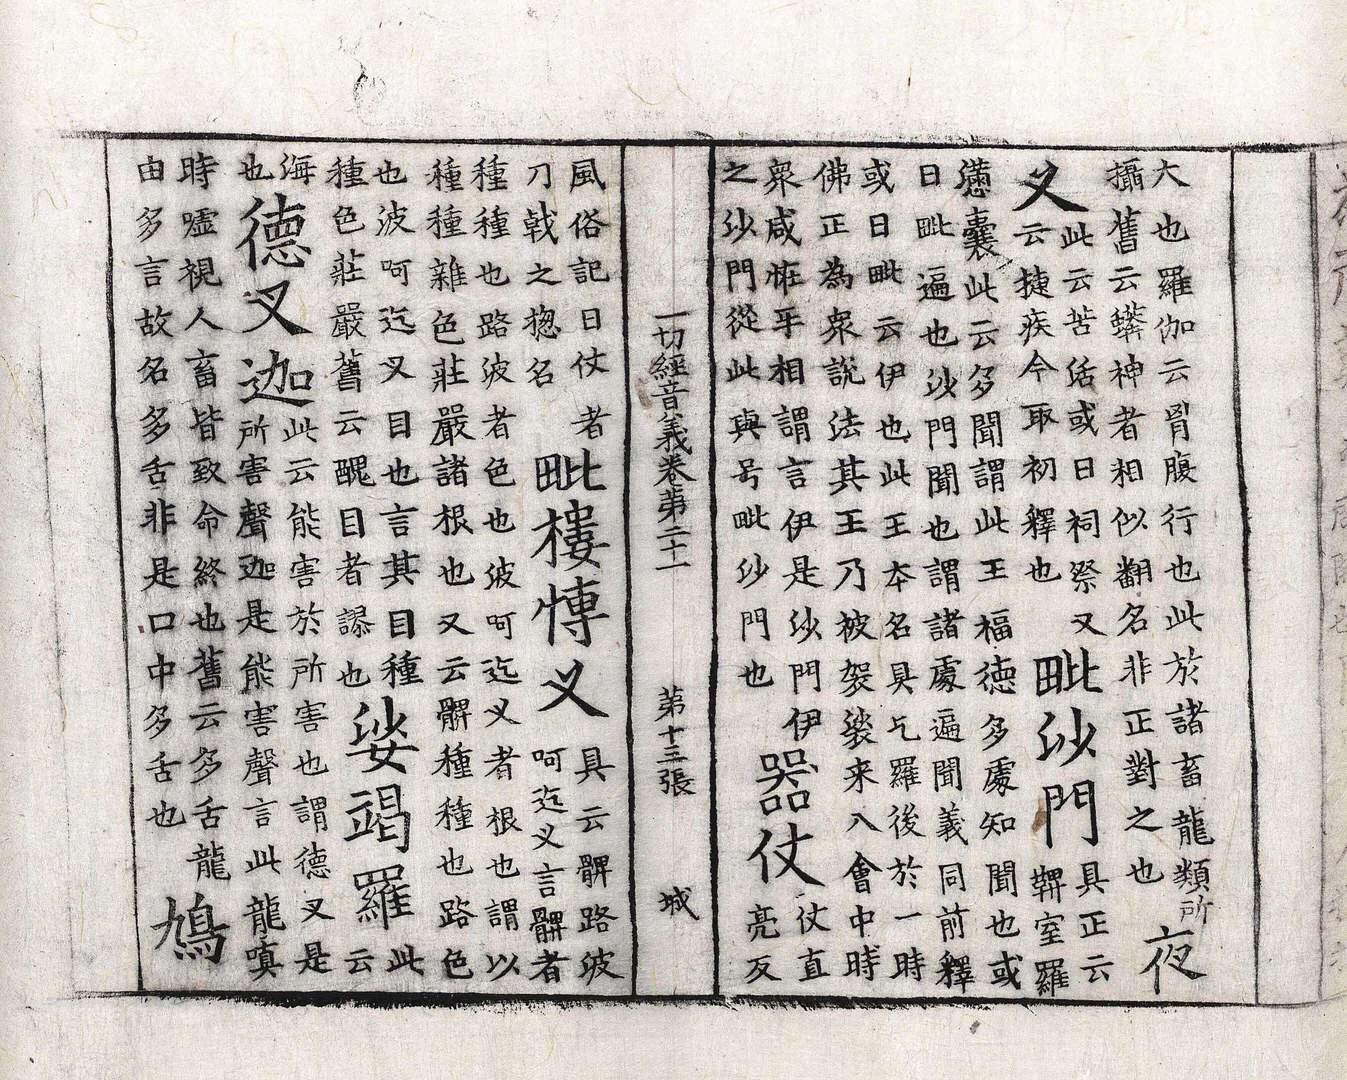 大也羅伽云胷腹行也此於諸畜龍類所
攝舊云蟒神者相似翻名非正對之也
夜
叉
此云苦活或曰祠祭又
云捷疾今取初釋也
毗沙門
具正云
鞞室羅
懣囊此云多聞謂此王福德多處知聞也或
曰毗遍也沙門聞也謂諸處遍聞義同前釋
或曰毗云伊也此王本名具乞羅後於一時
佛正為衆說法其王乃被袈裟来入會中時
衆咸恠乎相謂言伊是沙門伊
之沙門從此與号毗沙門也
器仗
仗直
亮反
一切經音義卷第二十一 第十三張 城
風俗記曰仗者
刀戟之揔名
毗樓愽叉
具云髀路波
呵迄叉言髀者
種種也路波者色也波呵迄叉者根也謂以
種種雜色莊嚴諸根也又云髀種種也路色
也波呵迄叉目也言其目種
種色莊嚴舊云醜目者謬也
娑竭羅
此
云
海
也
德叉迦
此云能害於所害也謂德叉是
所害聲迦是能害聲言此龍嗔
時噓視人畜皆致命終也舊云多舌龍
由多言故名多舌非是口中多舌也
鳩